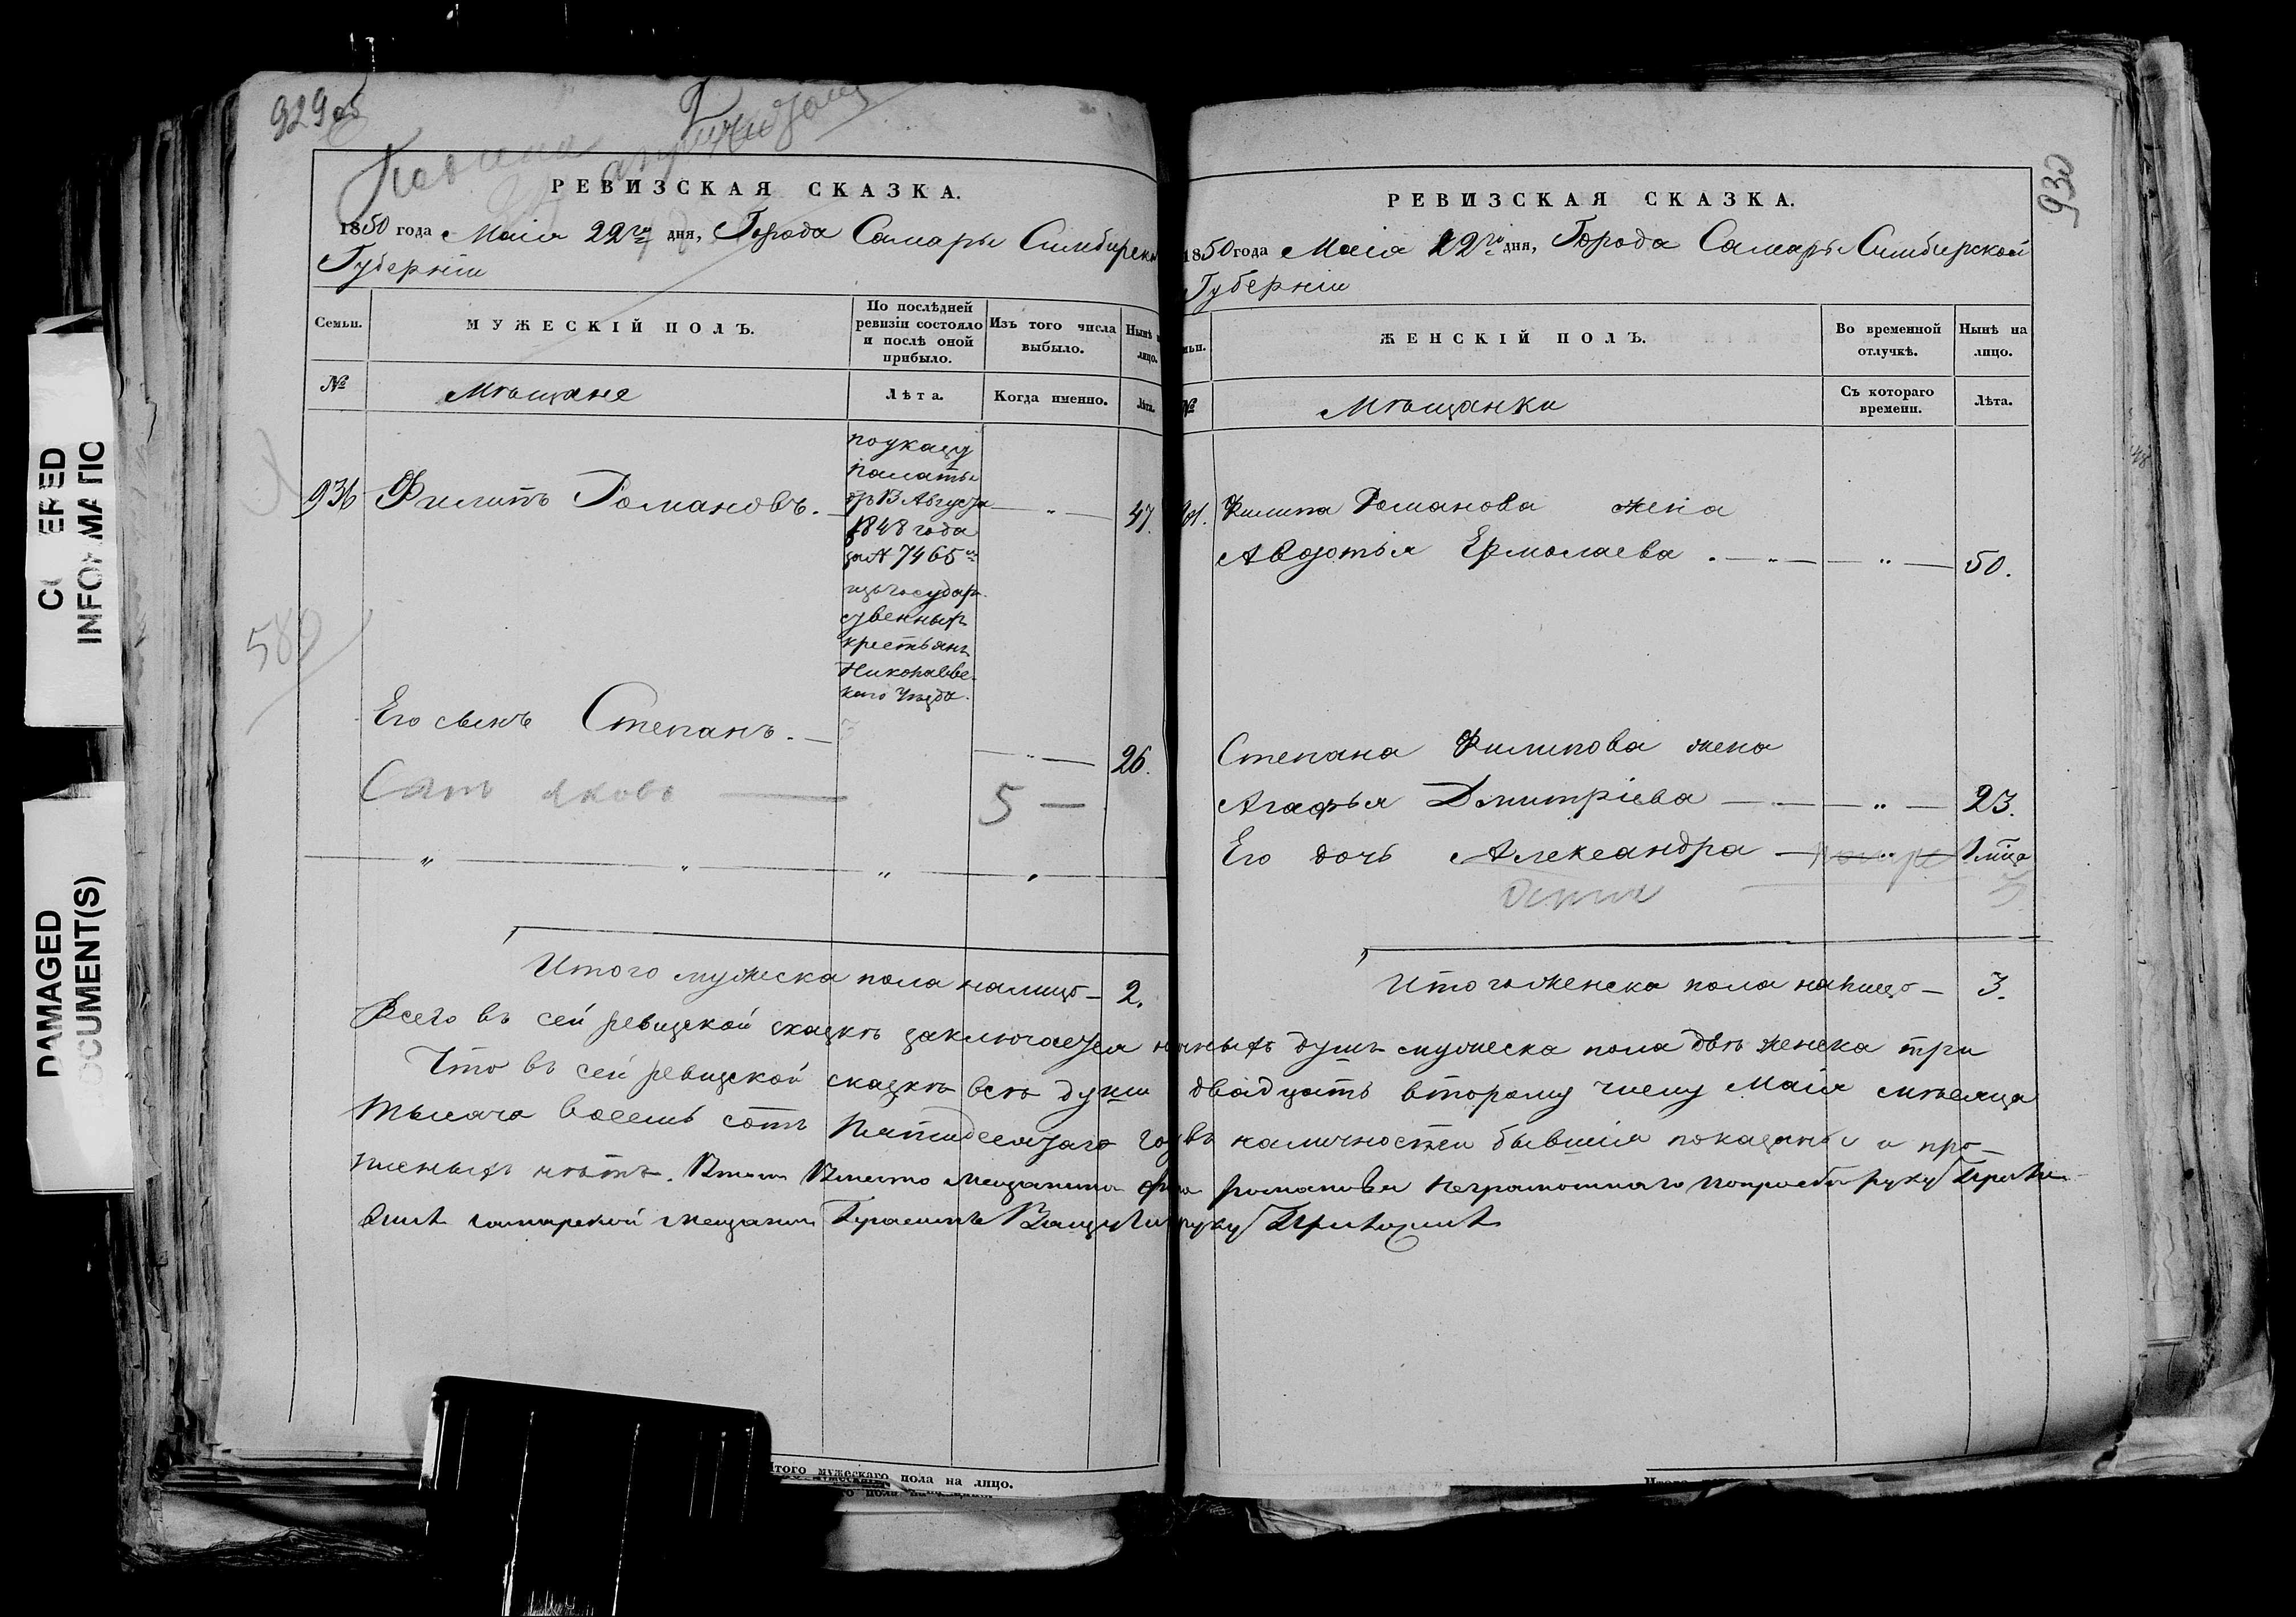 929 об
РЕВИЗСКАЯ СКАЗКА.
1850 года Маія 22го дня, Города Самары Симбирской
Губерніи
Семьи.
МУЖЕСКІЙ ПОЛЪ.
По послѣдней ревизіи состояло и послѣ оной прибыло.
Изъ того числа выбыло.
Нынѣ на лицо.
№
Мѣщане
Лѣта.
Когда именно.
Лѣта.
936 Филипъ Романовъ.
по указу
палаты
отъ 13 Августа
1848 года
за № 7465м
изъ государ-
ственныхъ
крестьянъ
Николаев-
каго Уѣзда.
47.
589
Его сынъ Степанъ.
26.
Сынъ Яковъ
5
Итого мужеска пола налицо 2.
930
РЕВИЗСКАЯ СКАЗКА.
1850 года Маія 22го дня, Города Самары Симбирской
Губерніи
ЖЕНСКІЙ ПОЛЪ.
Во временной отлучкѣ.
Нынѣ на лицо.
№
Мѣщанки
Съ котораго времени.
Лѣта.
Филипа Романова жена
Авдотья Ермолаева 50.
Степана Филипова жена
Агафья Дмитріева 23.
Его дочь Александра 1 мца
Итого женска пола налицо 3.
Всего въ сей ревизской сказкѣ заключается наличныхъ душъ мужеска пола двѣ женска три
Что въ сей ревизской сказкѣ всѣ души двадцать второму числу Маія мѣсяца
тысяча восемь сотъ Пятидесятаго года въ наличностеи бывшія показаны и про-
писныхъ нѣтъ. Вместо мещанина Романова неграмотнаго по просьбе руку
самарской мещанин руку Приложилъ
Итого мужескаго пола на лицо.
DAMAGED
DOCUMENT(S)